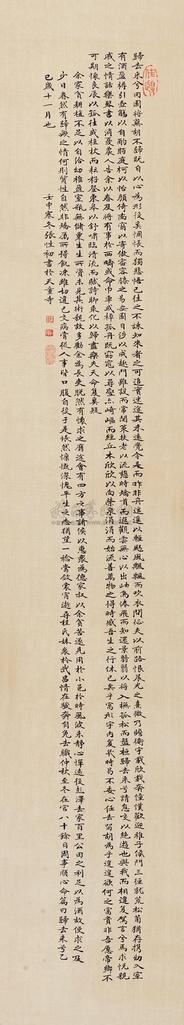 歸去來兮田園將蕪胡不歸既自以心為形役奚惆悵而獨悲悟已往之不諫知來者之可追實迷途其未遠覺今是而昨非舟遙遙以輕颺風飄飄而吹衣問征夫以前路恨晨光之熹微乃瞻衡宇載欣載奔僮僕歡迎稚子候門三徑就荒松菊猶存攜幼入室
有酒盈樽引壺觴以自酌眄庭柯以怡顏倚南窗以寄傲審容膝之易安園日涉以成趣門雖設而常關策扶老以流憩時矯首而遐觀雲無心以出岫鳥倦飛而知還景翳翳以將入撫孤松而盤桓歸去來兮請息交以絕遊世與我而相違復駕言兮焉求悅親
戚之情話樂琴書以消憂農人告余以春及將有事於西疇或命巾車或棹孤舟既窈窕以尋壑亦崎嶇而經丘木欣欣以向榮泉涓涓而始流善萬物之得時感吾生之行休已矣乎寓形宇內復幾時曷不委心任去留胡為乎遑遑欲何之富貴非吾願帝鄉不
可期懷良辰以孤往或植杖而耘耔登東皋以舒嘯臨清流而賦詩聊乘化以歸盡樂夫天命復奚疑
余家貧耕植不足以自給幼稚盈室缾無儲粟生生所資未見其術親故多勸余為長吏脫然有懷求之靡途會有四方之事諸侯以惠愛為德家叔以余貧苦遂見用於小邑於時風波未靜心憚遠役彭澤去家百里公田之利足以為酒故便求之及
少日眷然有歸歟之情何則質性自然非矯厲所得飢凍雖切違己交病嘗從人事皆口腹自役於是悵然慷慨深愧平生之志猶望一稔當斂裳宵逝尋程氏妹喪於武昌情在駿奔自免去職仲秋至冬在官八十餘日因事順心命篇曰歸去來兮乙
巳歲十一月也
壬申寒冬張性初書於天童寺